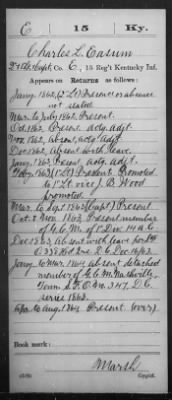 E 15 Ky.
Charles L. Easum
2d Lt, Capt, Co. E, 15 Reg't Kentucky Inf.
Appears on Returns as follows:
Jany, 1862, (2" Lt) Presence or absence
not stated
Mar. to July 1862, Present.
Oct. 1862, Present, actg. adgt.
Nov. 1862, Absent, actg. adgt.
Dec. 1862, Absent with leave.
Jany. 1863, Present, actg. adgt.
Feby. 1863, (1" Lt) Present. Promoted
to 1" Lt. vice J. B. Wood
promoted.
Mar. to Sept. 1863 (Capt) Present
Oct. & Nov. 1863, Present member
of G. C. M. 1" Div. 14 A. C.
Dec. 1863, Absent with leave
Jany. to Mar. 1864 absent detached
member of G. C. M. Nashville
Tenn. S. F. O. No. 347, D. C.
series 1863.
Apr. to Aug. 1864 Present. (over)
Book mark:
Marsh
Copyist.